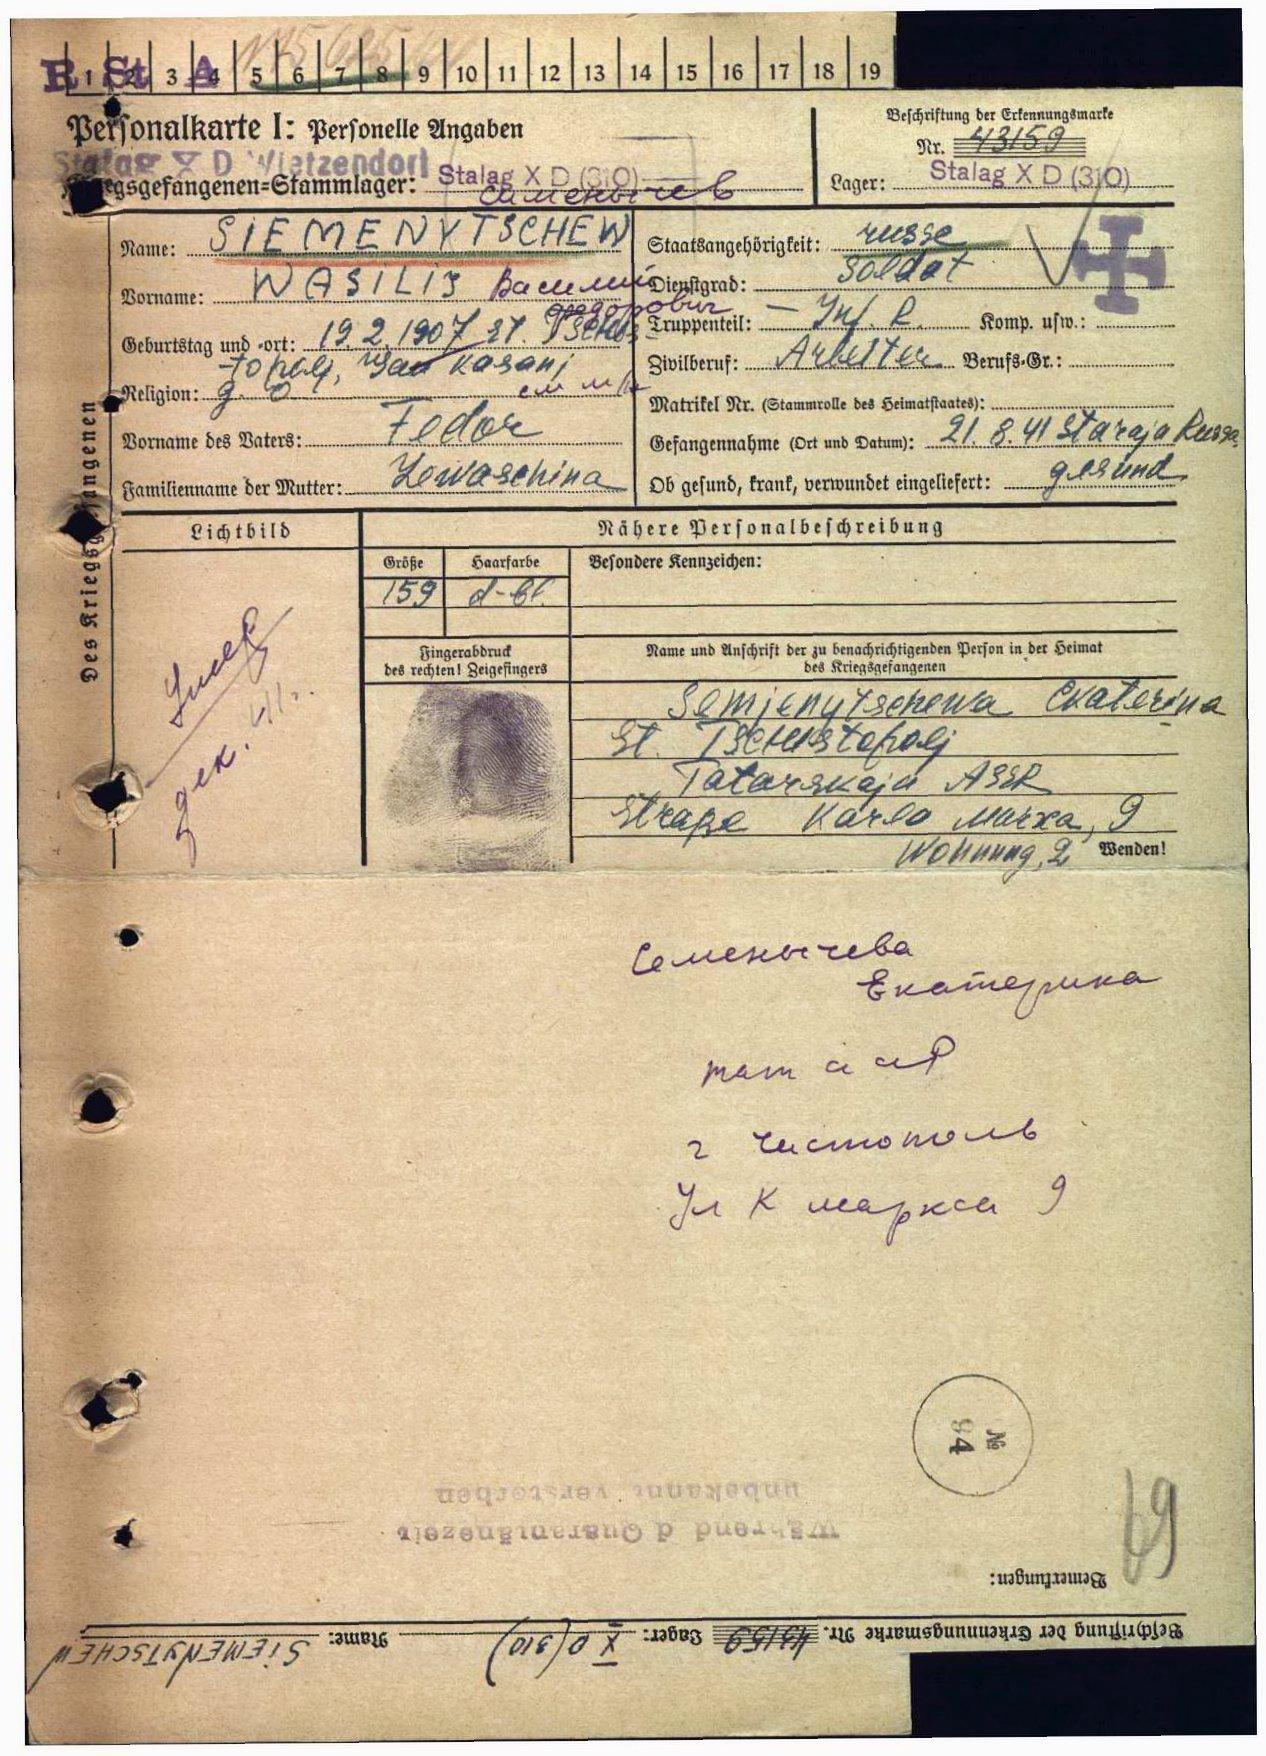 R. St A
1 2 3 4 5 6 7 8 9 10 11 12 13 14 15 16 17 18 19
Personalkarte I: Personelle Angaben
Beschriftung der Erkennungsmarke
Nr. 43159
Stalag X D Wietzendorf
Kriegsgefangenen-Stammlager: Stalag X D (310)
Lager: Stalag X D (310)
Семенычев
Name: SIEMENYTSCHEW
Vorname: WASILIJ Василий
Федорович
Geburtstag und -ort: 19.2.1907 st. Tschis-
topolj, Kasanj
Religion: g. o
Vorname des Vaters: Fedor
Familienname der Mutter: Lewaschina
Staatsangehörigkeit: russe
Dienstgrad: Soldat
Truppenteil: – Inf. R. Komp. usw.:
Zivilberuf: Arbeiter Berufs-Gr.:
Matrikel Nr. (Stammrolle des Heimatstaates):
Gefangennahme (Ort und Datum): 21.8.41 Staraja Russa
Ob gesund, krank, verwundet eingeliefert: gesund
Des Kriegsgefangenen
Lichtbild
Nähere Personalbeschreibung
Größe Haarfarbe Besondere Kennzeichen:
159 d-bl.
Fingerabdruck
des rechten! Zeigefingers
Name und Anschrift der zu benachrichtigenden Person in der Heimat
des Kriegsgefangenen
Semjenytschewa Ekaterina
St. Tschistopolj
Tatarskaja ASSR
Straße Karla Marxa, 9
Wohnung, 2 Wenden!
Умер
дек. 41г.
Семенычева
Екатерина
тат а сср
г Чистополь
Ул К маркса 9
№
94
Während d Quarantänezeit
unbekannt verstorben
69
Bemerkungen:
Beschriftung der Erkennungsmarke Nr. 43159 Lager: X D (310) Name: SIEMENYTSCHEW